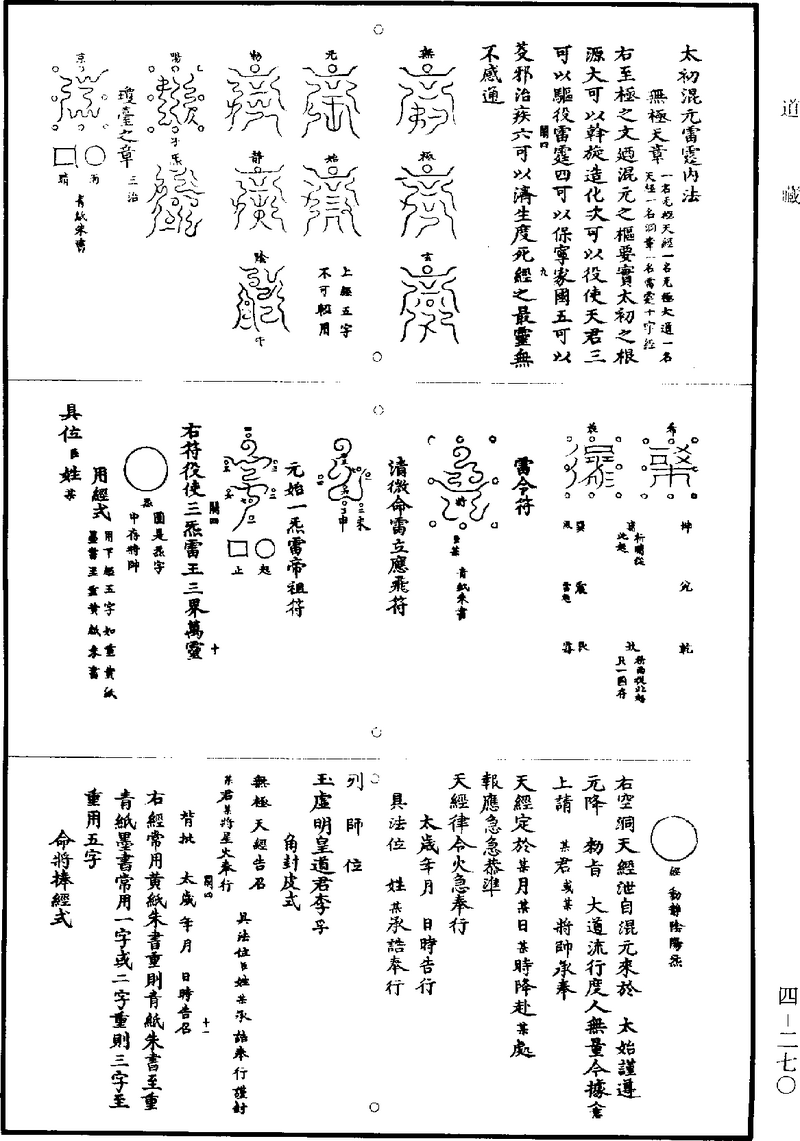 道藏
四－二七〇
太初混元雷霆內法
無極天章
一名无極天經一名无極大道一名
天經一名洞章一名雷霆十字經
右至極之文廼混元之樞要實太初之根
源大可以幹旋造化次可以役使天君三
可以驅役雷霆四可以保寧家國五可以
芟邪治疾六可以濟生度死經之最靈無
不感通
闕四
九
無
極
玄
元
始
上經五字
不可輕用
動
靜
陰
陽
炁
瓊臺之章
三治
青紙朱書
希
坤
兌
乾
巽
震
艮
雷令符
將
青紙朱書
清微命雷立應飛符
元始一炁雷帝祖符
起
止
右符役使三炁雷王三界萬靈
闕四
十
炁
圖是炁字
中存將帥
用經式
用下經五字如重黃紙
墨書至重黃紙朱書
具位臣姓某
經動靜陰陽炁
右空洞天經泄自混元來於 太始謹遵
元降 勑旨 大道流行度人無量今據意
上請 某君或某將帥承奉
天經定於某月某日某時降赴某處
報應急急恭準
天經律令火急奉行
太歲年月 日時告行
具法位 姓某承誥奉行
列師位
玉虛明皇道君李孚
角封皮式
無極天經告召
具法位臣姓某承誥奉行謹封
某君某將星火奉行
背批 太歲年月 日時告召
闕四
十一
右經常用黃紙朱書重則青紙朱書至重
青紙墨書常用一字或二字重則三字至
重用五字
命將捧經式